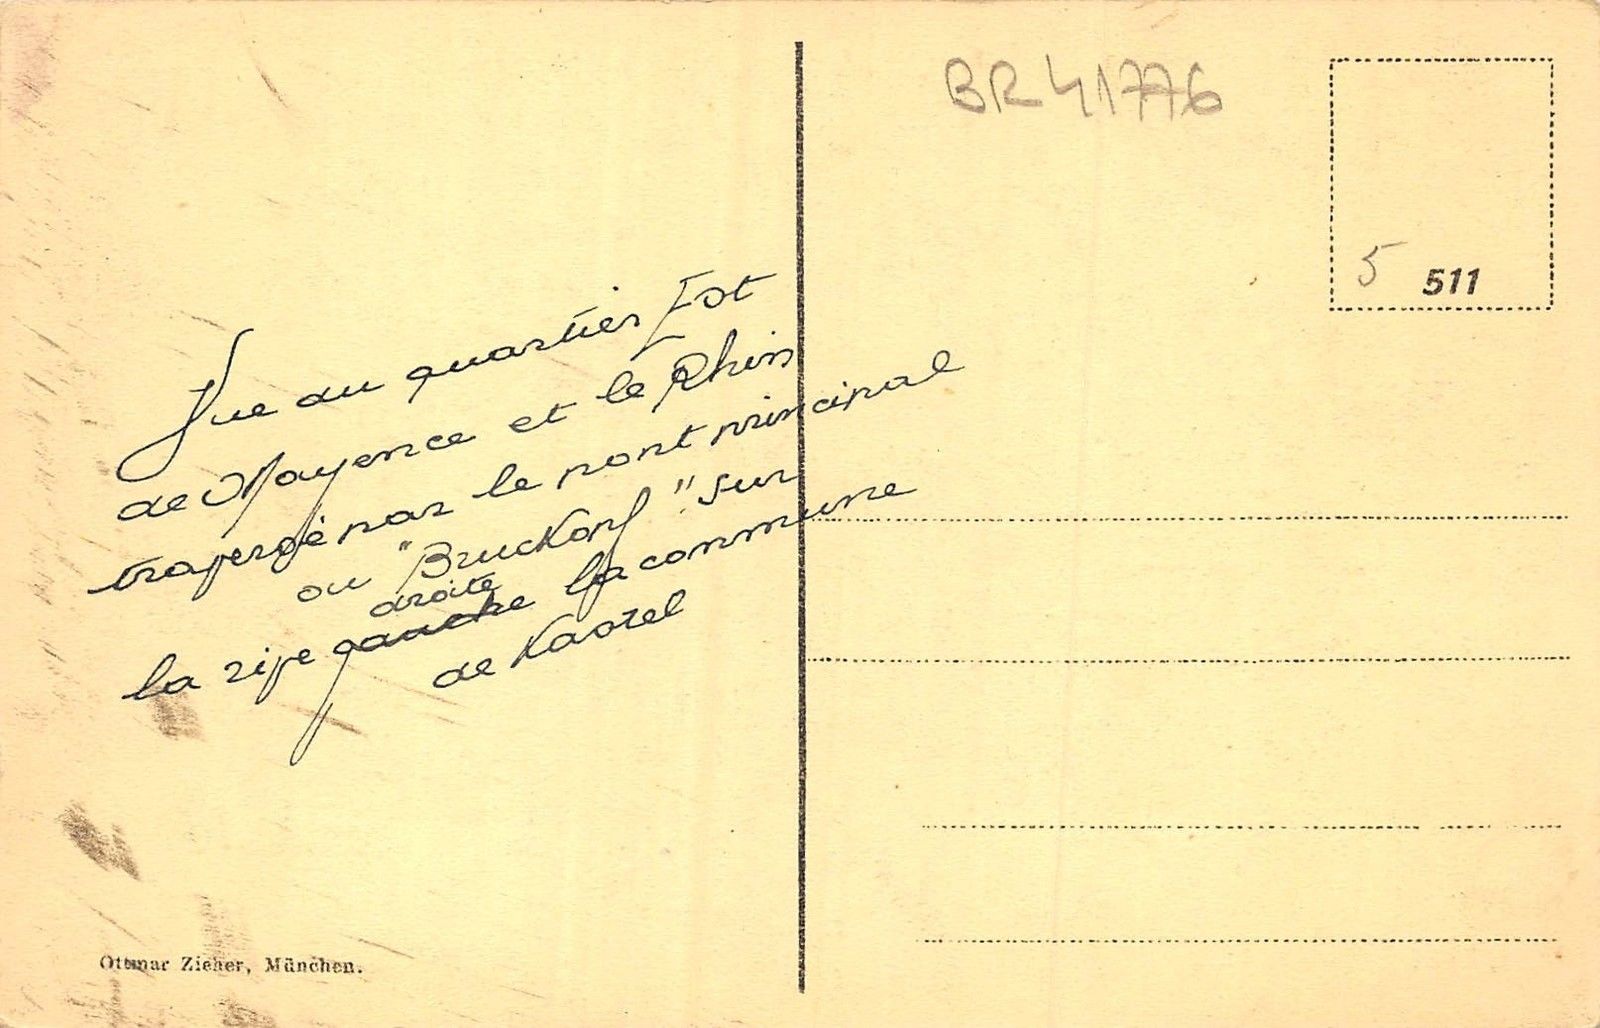 BR41776
5 511
Vue du quartier Est
de Mayence et le Rhin
traversé par le pont principal
ou "Bruckopf" sur
droite
la rive gauche la commune
de Kastel
Ottmar Zieher, München.